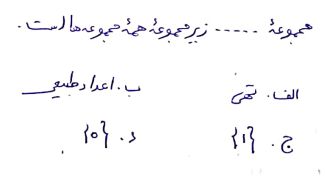 مجموعهٔ ..... زیرمجموعهٔ همهٔ مجموعه‌ها است.
الف. تهی ب. اعداد طبیعی
ج. {1} د. {0}